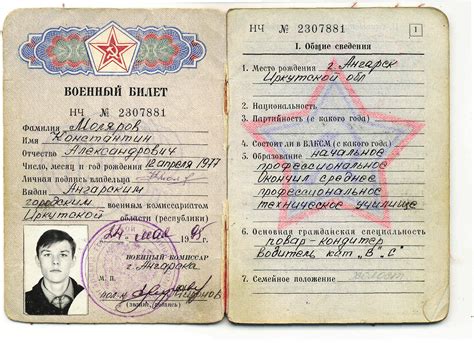 ВОЕННЫЙ БИЛЕТ
НЧ № 2307881
Фамилия Моляров
Имя Константин
Отчество Александрович
Число, месяц и год рождения 12 апреля 1977
Личная подпись владельца
Выдан Ангарским
городским военным комиссариатом
Иркутской области (республики)
24 мая 1995
ВОЕННЫЙ КОМИССАР
г. Ангарска
М. П.
(звание, подпись)
НЧ № 2307881
1
I. Общие сведения
1. Место рождения г. Ангарск
Иркутской обл
2. Национальность
3. Партийность (с какого года)
4. Состоит ли в ВЛКСМ (с какого года)
5. Образование начальное
профессиональное
Окончил среднее
профессиональное
техническое училище
6. Основная гражданская специальность
повар-кондитер
водитель кат "В", С"
7. Семейное положение холост